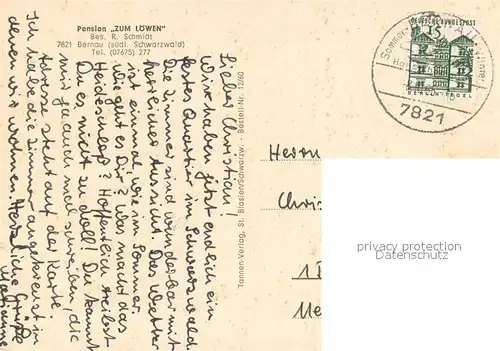 Pension „ZUM LÖWEN"
Bes. R. Schmidt
7821 Bernau (südl. Schwarzwald)
Tel. (07675) 277
Lieber Christian!
Wir haben jetzt endlich ein
festes Quartier im Schwarzwald.
Die Zimmer sind wunderbar mit
herrlicher Aussicht. Das Wetter
ist einmal, wie im Sommer.
Wie geht es Dir? Was macht das
? Hoffentlich treibst
Du es nicht zu doll! Du kannst
mir ja auch mal schreiben, die
Adresse steht auf der Karte.
Ich habe die Zimmer angekreuzt in
denen wir wohnen. Herzliche Grüße
Marianne
Tannen-Verlag, St. Blasien/Schwarzw. - Bestell-Nr. 12/60
DEUTSCHE BUNDESPOST
15
BERLIN-TEGEL
Sommer
7821
Herrn
Chris
1
privacy protection
ansichtskarten-center.de